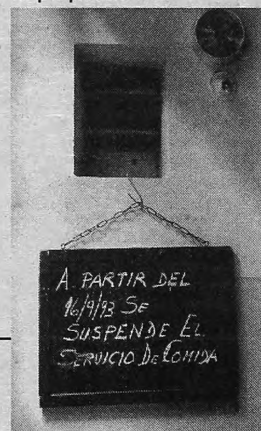 A PARTIR DEL
16/9/93 SE
SUSPENDE EL
SERVICIO DE COMIDA